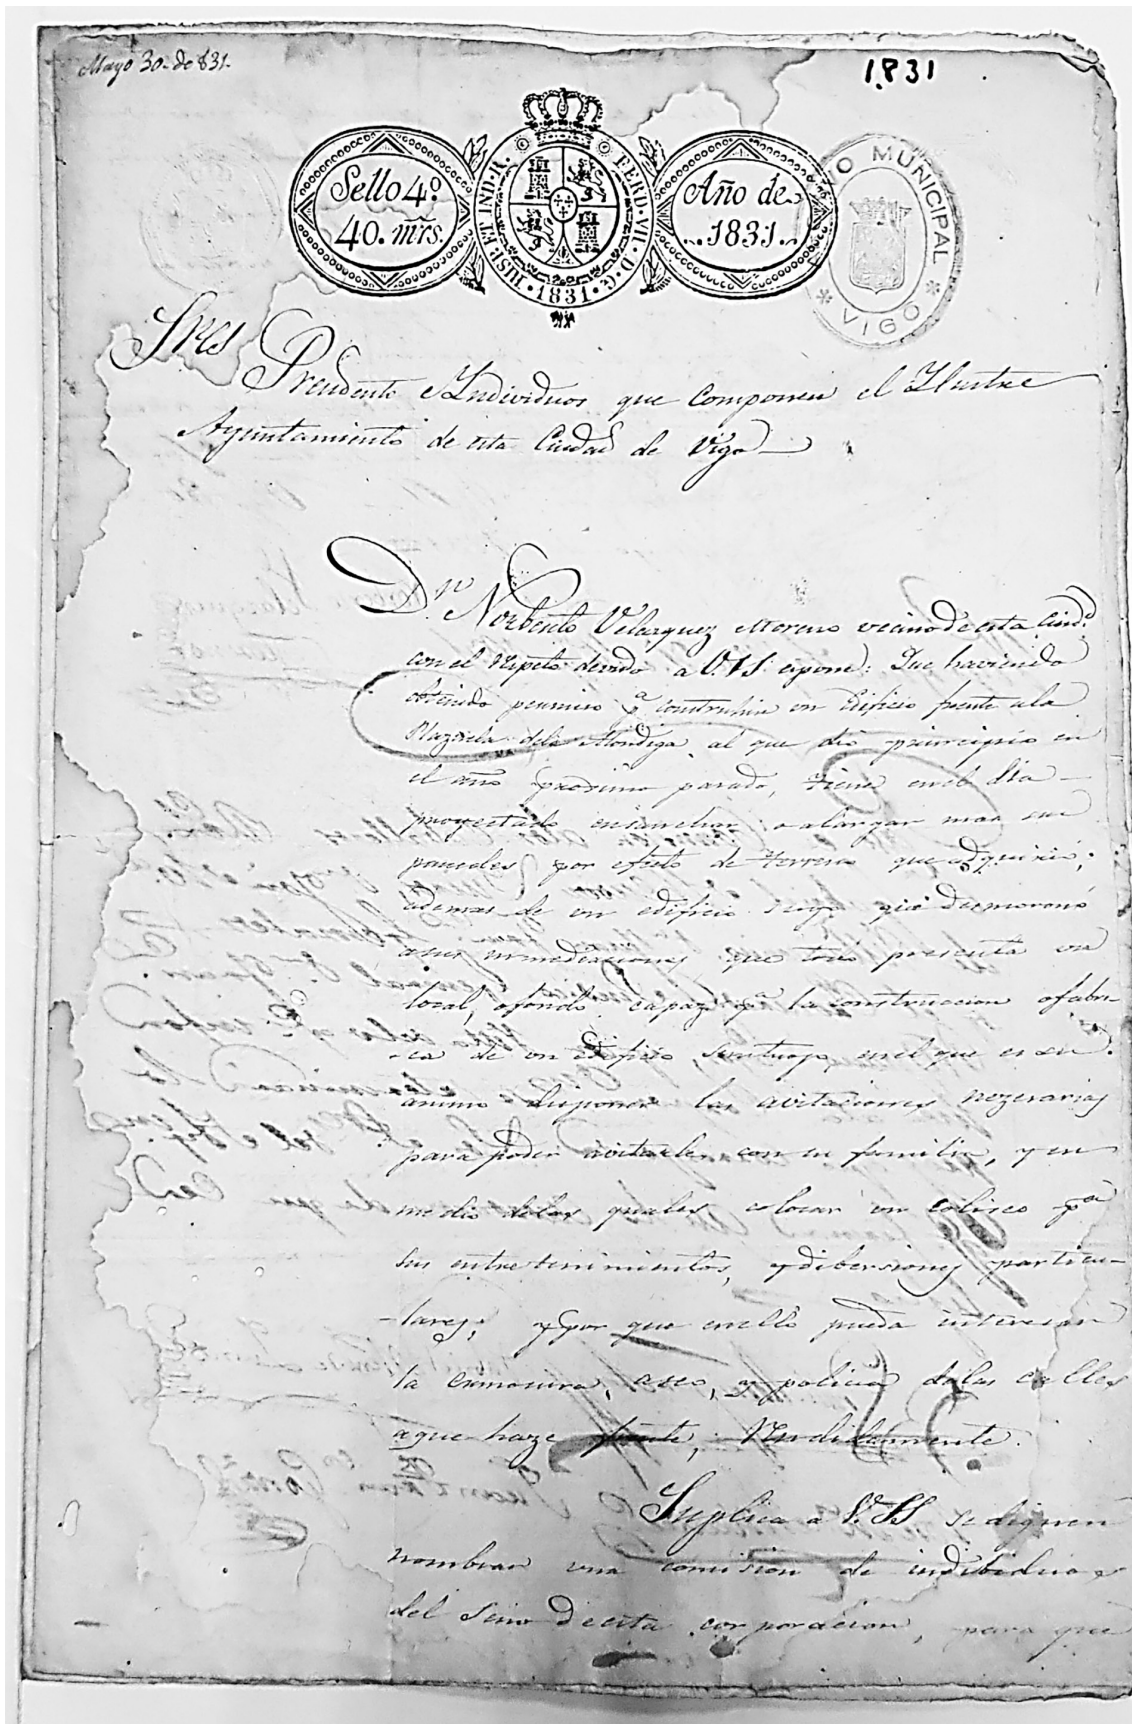 Mayo 30 de 831.
1831
Sello 4º
40. mrs.
HISP. ET IND. R.
FERD. VII. D. G.
1831
Año de
1831.
O MUNICIPAL
* VIGO *
Sres
Presidente e Individuos que componen el Ylustre
Ayuntamiento de esta Ciudad de Vigo
Dn. Norberto Velazquez Moreno vecino de esta Ciudd.
con el respeto devido a V.SS. expone: Que haviendo
obtenido permiso pa. construhir un Edificio frente ala
Plazuela dela Alondiga al que dió principio en
el año procsimo pasado, tiene en el dia
proyectado ensanchar o alargar mas sus
paredes por efecto de terreno que adquirió;
ademas de un edificio suyo que desmoronó
asus inmediaciones que todo presenta un
local, ofondo capaz pa. la construccion ofabri-
ca de un edificio suntuoso, enel que es su
animo disponer las avitaciones nezesarias
para poder avitarle con su familia, y en
medio delas quales colocar un coliseo pa.
sus entretenimientos, y dibersiones particu-
-lares; y por que en ello pueda interesar
la ermosura, aseo, y policia delas calles
aque haze frente, Rendidamente.
Suplica a V.SS se dignen
nombrar una comision de indibiduos
del Seno de esta corporacion, para que